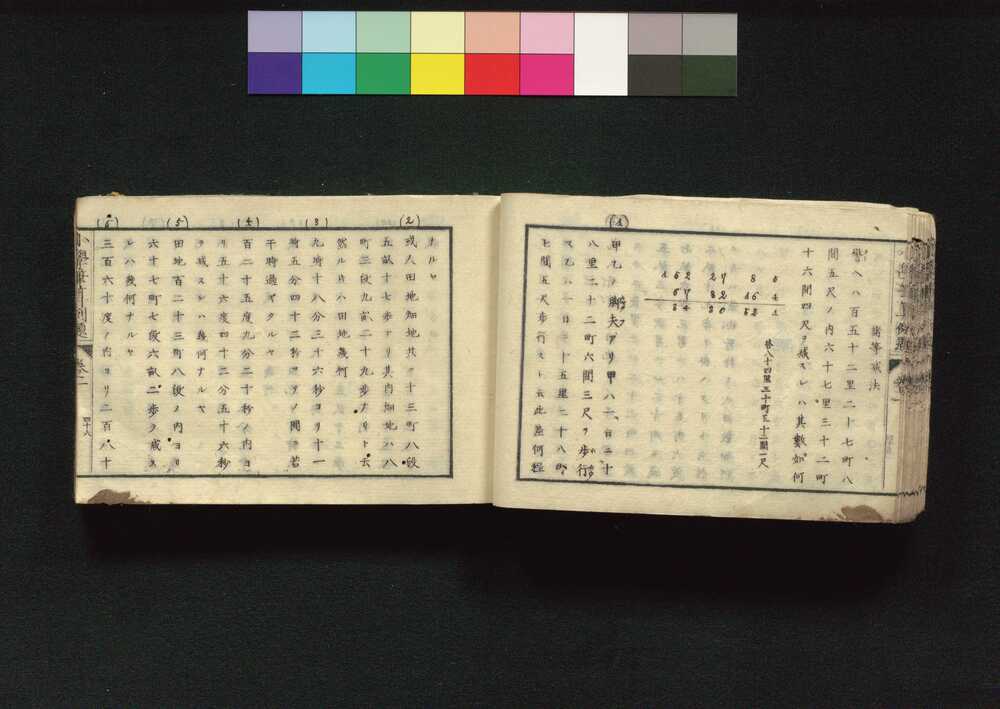 諸等減法
譬ヘハ百五十二里二十七町八
間五尺ノ内六十七里三十二町
十六間四尺ヲ減スレハ其數如何
答八十四里三十町五十二間一尺
152 27 8 5
67 32 16 4
84 30 52 1
(1)
甲乙ノ脚夫アリ甲ハ一日二十
八里二十二町六間三尺ヲ歩行
ス乙ハ一日三十五里二十八町
七間五尺歩行スト云此差何程
ナルヤ
(2)
或人田地畑地共ニ十三町八段
五畝十七歩アリ其内畑地ハ八
町三段九畝二十九歩ナリト云
然ル片ハ田地幾何
(3)
九時十八分三十六秒ヨリ十一
時五分四十二秒マテノ間ハ若
干時過キタルヤ
(4)
百二十五度九分二十秒ノ内ヨ
リ五十六度四十二分五十六秒
ヲ減スレハ幾何ナルヤ
(5)
田地百二十三町八段ノ内ヨリ
六十七町七段六畝二歩ヲ減ス
レハ幾何ナルヤ
(6)
三百六十度ノ内ヨリ二百八十
四十六